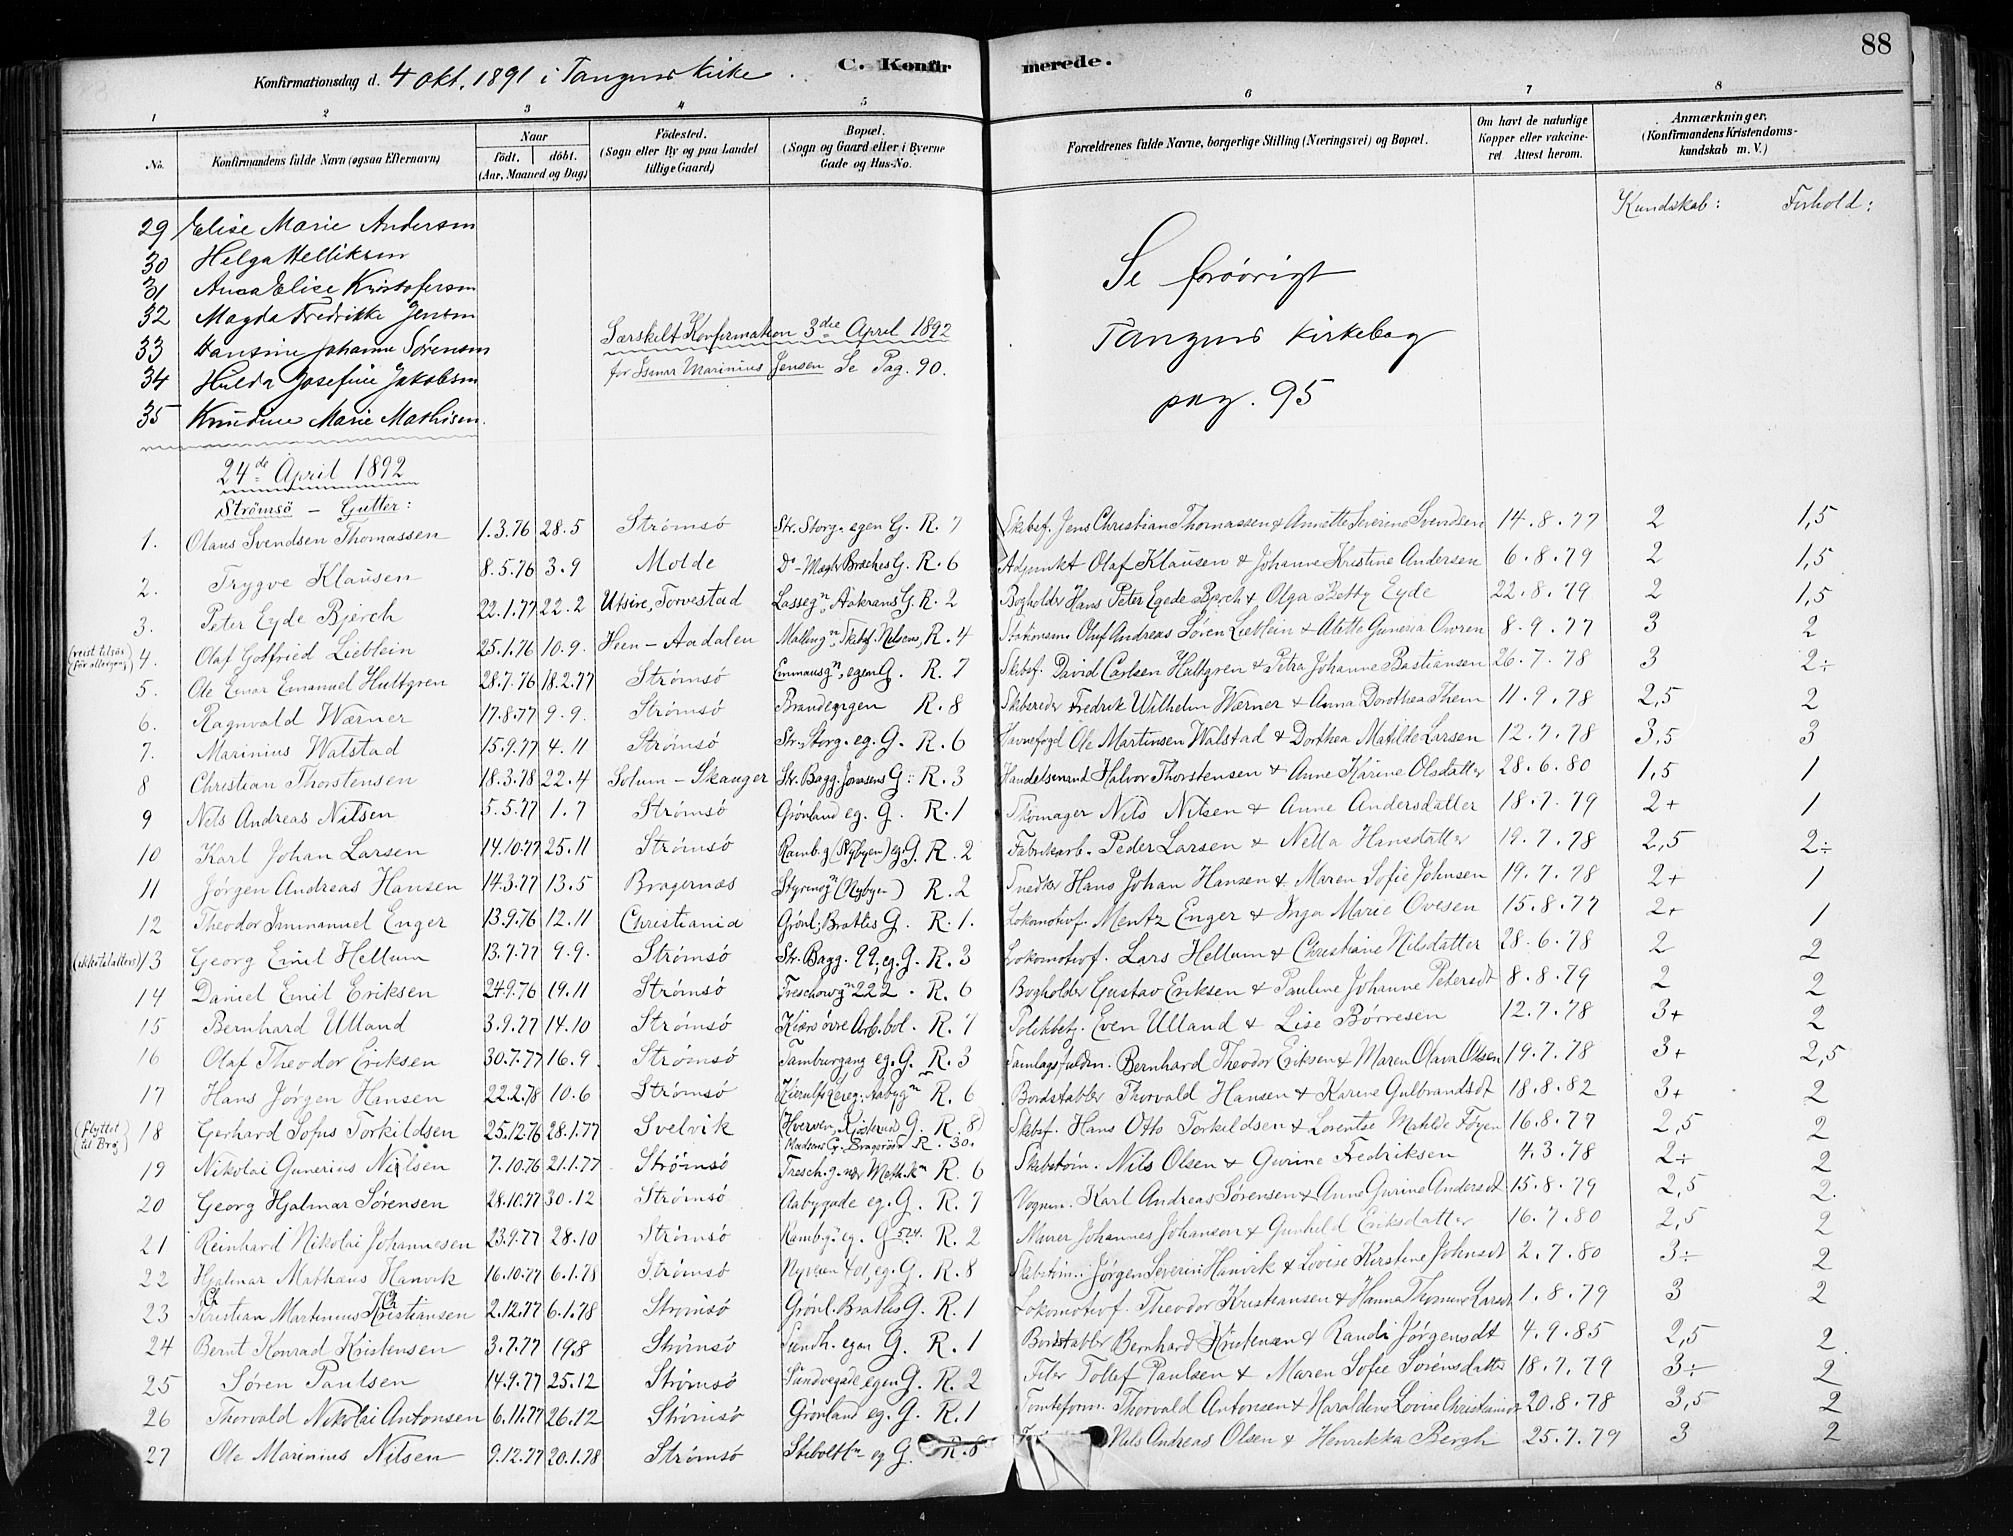 88
Konfirmationsdag d. 4 Okt. 1891 i Tangens Kirke. C. Konfirmerede.
1 2 3 4 5 6 7 8
No. Konfirmandens fulde Navn (ogsaa Efternavn) Naar født. døbt. (Aar, Maaned og Dag) Fødested. (Sogn eller By og paa Landet tillige Gaard) Bopæl. (Sogn og Gaard eller i Byerne Gade og Hus-No. Forældrenes fulde Navne, borgerlige Stilling (Næringsvei) og Bopæl. Om havt de naturlige Kopper eller vakcineret Attest herom. Anmærkninger, (Konfirmandens Kristendomskundskab m. V.)
Kundskab: Forhold:
29 Elise Marie Andersen
30 Helga Helliksen
31 Anna Elise Kristofersen
32 Magda Fredrikke Jensen
33 Hansine Johanne Sørensen
34 Hulda Josefine Jakobsen
35 Knudine Marie Mathisen
Særskilt Konfirmation 3die April 1892
for Ismar Marinius Jensen Se Pag. 90.
Se forøvrigt
Tangens Kirkebog
pag. 95
24de April 1892
Strømsø – Gutter:
1. Olaus Svendsen Thomassen 1.3.76 28.5 Strømsø Str. Storg. egen G. R. 7 Skibsf. Jens Christian Thomassen & Annette Severine Svendsen 14.8.77 2 1,5
2. Trygve Klausen 8.5.76 3.9 Molde Do – Braches G. R. 6 Adjunkt Olaf Klausen & Johanne Kristine Andersen 6.8.79 2 1,5
3. Peter Eyde Bjerch 22.1.77 22.2 Utsire, Torvestad Lasseg. Aakrans G. R. 2 Bogholder Hans Peter Egede Bjerch & Olga Betty Eyde 22.8.79 2 1,5
(reist tilsøs før ) 4. Olaf Gotfried Lieblein 25.1.76 10.9. Hen – Aadalen Malling. Skibsf. Nilsens, R. 4 Stationsm. Oluf Andreas Sören Lieblein & Alette Guneria Owren 8.9.77 3 2
5. Ole Einar Emanuel Hultgren 28.7.76 18.2.77 Strømsø Emmausg., egen G. R. 7 Skibsf. David Carlsen Hultgren & Petra Johanne Bastiansen 26.7.78 3 2÷
6. Ragnvald Wærner 17.8.77 9.9. Strømsø R. 8 Skibsreder Fredrik Wilhelm Wærner & Anna Dorothea Them 11.9.78 2,5 2
7. Marinius Walstad 15.9.77 4.11 Strømsø Str. Storg. eg. G. R. 6 Havnefogd Ole Martinsen Walstad & Dorthea Matilde Larsen 12.7.78 3,5 3
8 Christian Thorstensen 18.3.78 22.4 Solum – Skanger Str. Bagg. Jonasens G. R. 3 Handelsmand Halvor Thorstensen & Anne Karine Olsdatter 28.6.80 1,5 1
9 Nils Andreas Nilsen 5.5.77 1.7 Strømsø Grønland eg. G. R. 1 Skomager Nils Nilsen & Anne Andersdatter 18.7.79 2+ 1
10 Karl Johan Larsen 14.10.77 25.11 Strømsø Ramb.g (Nybyen) eg G. R. 2 Fabrikarb. Peder Larsen & Netta Hansdatter 19.7.78 2,5 2÷
11 Jørgen Andreas Hansen 14.3.77 13.5 Bragernæs (Nybyen) R. 2 Snedker Hans Johan Hansen & Maren Sofie Johnsen 19.7.78 2+ 1
12 Theodor Immanuel Enger 13.9.76 12.11 Christiania Grønl. Bratlis G. R. 1. Lokomotivf. Mentz Enger & Inga Marie Ovesen 15.8.77 2+ 1
13 Georg Emil Hellum 13.7.77 9.9. Strømsø Str. Bagg. 99, eg. G. R. 3 Lokomotivf. Lars Hellum & Christiane Nilsdatter 28.6.78 2 2
14 Daniel Emil Eriksen 24.9.76 19.11 Strømsø Treschowg. 222. R. 6 Bogholder Gustav Eriksen & Pauline Johanne Petersdt 8.8.79 2 2
15 Bernhard Ulland 3.9.77 14.10 Strømsø Kiær øvre Arb.bol. R. 7 Politibetj. Even Ulland & Lise Børresen 12.7.78 3+ 2
16 Olaf Theodor Eriksen 30.7.77 16.9 Strømsø Tamburgang eg. G. R. 3 Bernhard Theodor Eriksen & Maren Olava Olsen 19.7.78 3+ 2,5
17 Hans Jørgen Hansen 22.2.78 10.6 Strømsø R. 6 Bordstabler Thorvald Hansen & Karine Gulbrandsdt 18.8.82 3+ 2
(flyttet til Brg.) 18 Gerhard Sofus Torkildsen 25.12.76 28.1.77 Svelvik (Hverven, G. R. 8) Madsens G. R. 30. Skibsf. Hans Otto Torkildsen & Lorentse Matilde Føyen 16.8.77 2,5 2
19 Nikolai Gunerius Nilsen 7.10.76 21.1.77 Strømsø Tresch.g. R. 6 Skibstøm. Nils Olsen & Gurine Fredriksen 4.3.78 2÷ 2
20 Georg Hjalmar Sørensen 28.10.77 30.12 Strømsø Aabygade eg. G. R. 7 Vognm. Karl Andreas Sørensen & Anne Gurine Andersdt 15.8.79 2,5 2.
21 Reinhard Nikolai Johannesen 23.9.77 28.10 Strømsø Rambg. eg. G 524. R. 2 Murer Johannes Johanson & Gunhild Eriksdatter 16.7.80 2,5 2
22 Hjalmar Mathæus Hanvik 16.10.77 6.1.78 Strømsø Nybyen 401, eg. G. R. 8 Skibstøm. Jørgen Severin Hanvik & Lovise Kirstine Johnsdt 2.7.80 3÷ 2
23 Christian Martinius Christiansen 2.12.77 6.1.78 Strømsø Grønl. Bratlis G. R. 1 Lokomotivf. Theodor Kristiansen & Hanna Thomine Larsdt 1.8.79 3 2
24 Bernt Konrad Kristensen 3.7.77 19.8 Strømsø Sundh. egen G. R. 1 Bordstabler Bernhard Kristensen & Randi Jørgensdt 4.9.85 2,5 2.
25 Søren Paulsen 14.9.77 25.12 Strømsø Sundvegade egen G. R. 2 Filer Tollef Paulsen & Maren Sofie Sørensdatter 18.7.79 3÷ 2
26 Thorvald Nikolai Antonsen 6.11.77 26.12 Strømsø Grønland eg. G. R. 1 Tomteform. Thorvald Antonsen & Haraldine Lovise 20.8.78 3,5 2
27 Ole Marinius Nilsen 9.12.77 20.1.78 Strømsø eg G. R. 8 Nils Andreas Olsen & Henrikka Bergh 25.7.79 3 2